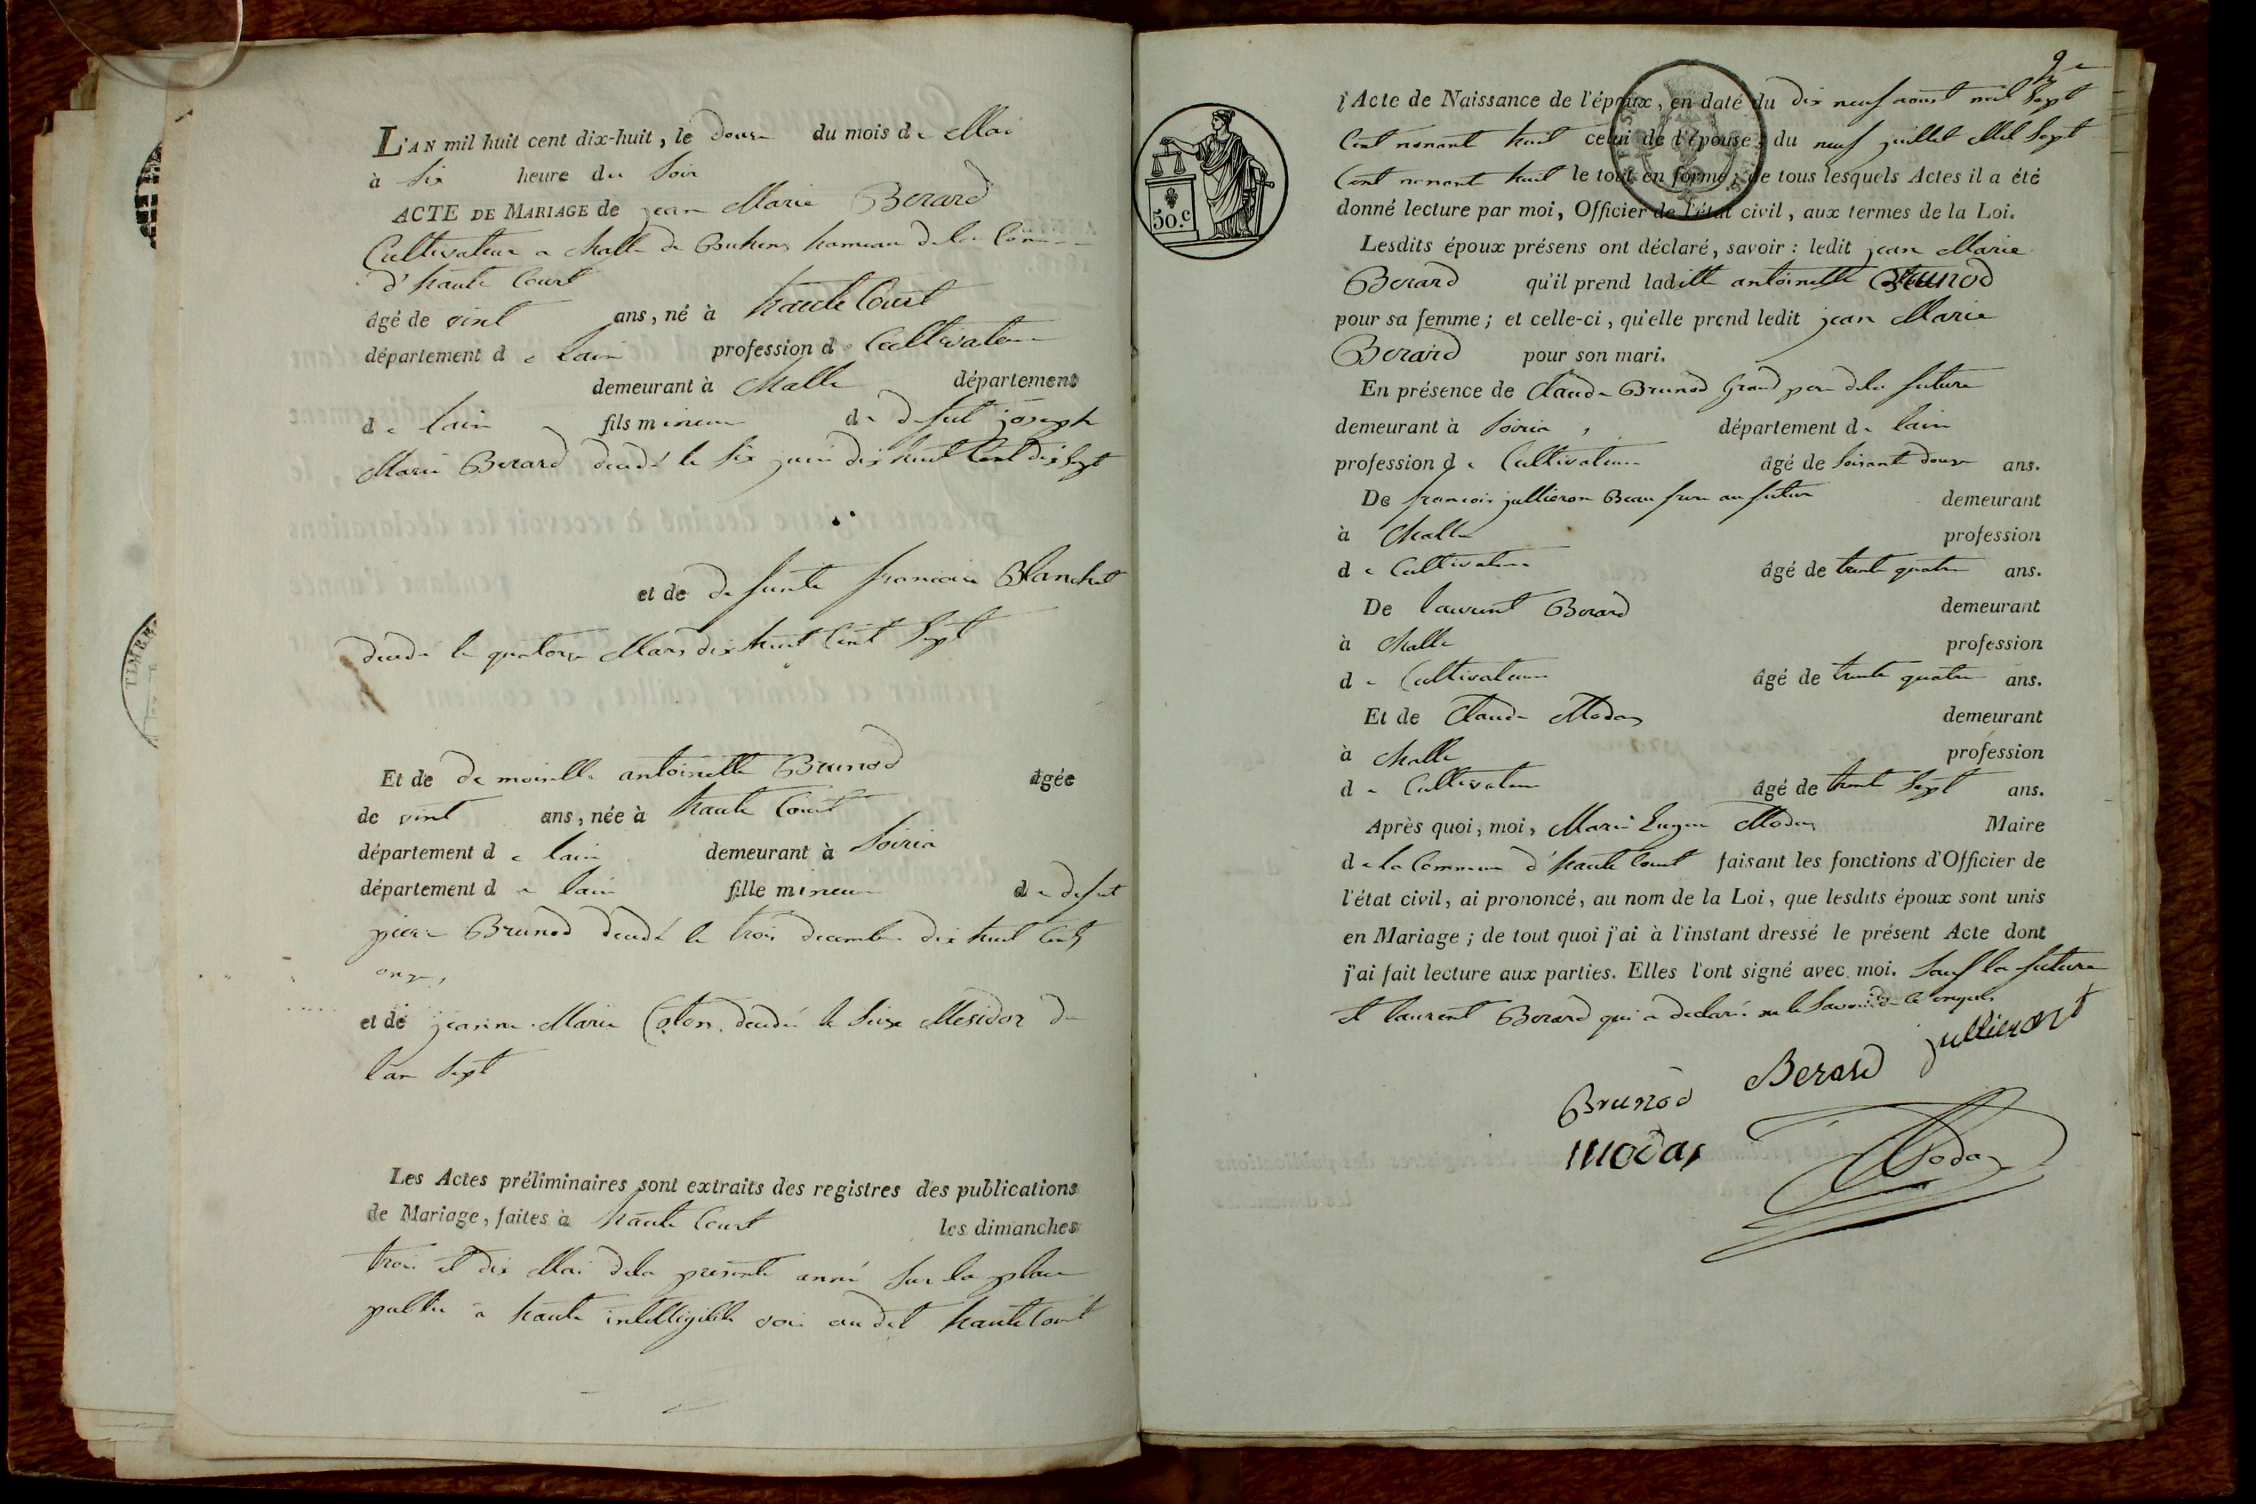 L'AN mil huit cent dix-huit, le douze du mois de Mai
à six heure du soir
ACTE DE MARIAGE de jean Marie Berard
Cultivateur a Challe de hameau de la Com
d'haute Court
âgé de vint ans, né à haute Court
département de lain profession de Cultivateur
demeurant à Challe département
de lain fils mineur de defut joseph
Marie Berard decedé le six juin dix huit Cent dix Sept
et de defunte francoise Blanchet
decedé le quatorze Mars dix huit Cent Sept
Et de demoiselle antoinette Brunod âgée
de vint ans, née à haute Court
département de lain demeurant à Soiria
département de lain fille mineure de defut
pierre Brunod decedé le trois decembre dix huit Cent
onze,
et de jeanne Marie Coton decedée le Seize Mesidor de
lan Sept
Les Actes préliminaires sont extraits des registres des publications
de Mariage, faites à haute Court les dimanches
trois et dix Mai dela presente année Sur la place
publie a haute intelligible voi audit haute Court
TIMBRE
9e
l'Acte de Naissance de l'époux, en date du dix neuf aoust mil Sept
Cent nonant huit celui de l'épouse, du neuf juillet Mil Sept
Cent nonant huit le tout en forme; de tous lesquels Actes il a été
donné lecture par moi, Officier de l'état civil, aux termes de la Loi.
50.c
Lesdits époux présens ont déclaré, savoir: ledit jean Marie
Berard qu'il prend laditte antoinette Brunod
pour sa femme; et celle-ci, qu'elle prend ledit jean Marie
Berard pour son mari.
En présence de Claude Brunod Grand pere dela future
demeurant à Soiria, département de lain
profession de Cultivateur âgé de soisante douze ans.
De francois jullieron Beau frere au futur demeurant
à Challe profession
de Cultivateur âgé de trente quatre ans.
De laurent Berard demeurant
à Challe profession
de Cultivateur âgé de trente quatre ans.
Et de Claude Modas demeurant
à Challe profession
de Cultivateur âgé de trente Sept ans.
Après quoi, moi, Marie Eugene Modas Maire
de la Commune d'haute Court faisant les fonctions d'Officier de
l'état civil, ai prononcé, au nom de la Loi, que lesdits époux sont unis
en Mariage; de tout quoi j'ai à l'instant dressé le présent Acte dont
j'ai fait lecture aux parties. Elles l'ont signé avec moi. Sauf la future
et laurent Berard qui a declaré ne le Savoir de ce enquis
Brunod Berard jullieront
modas Modas